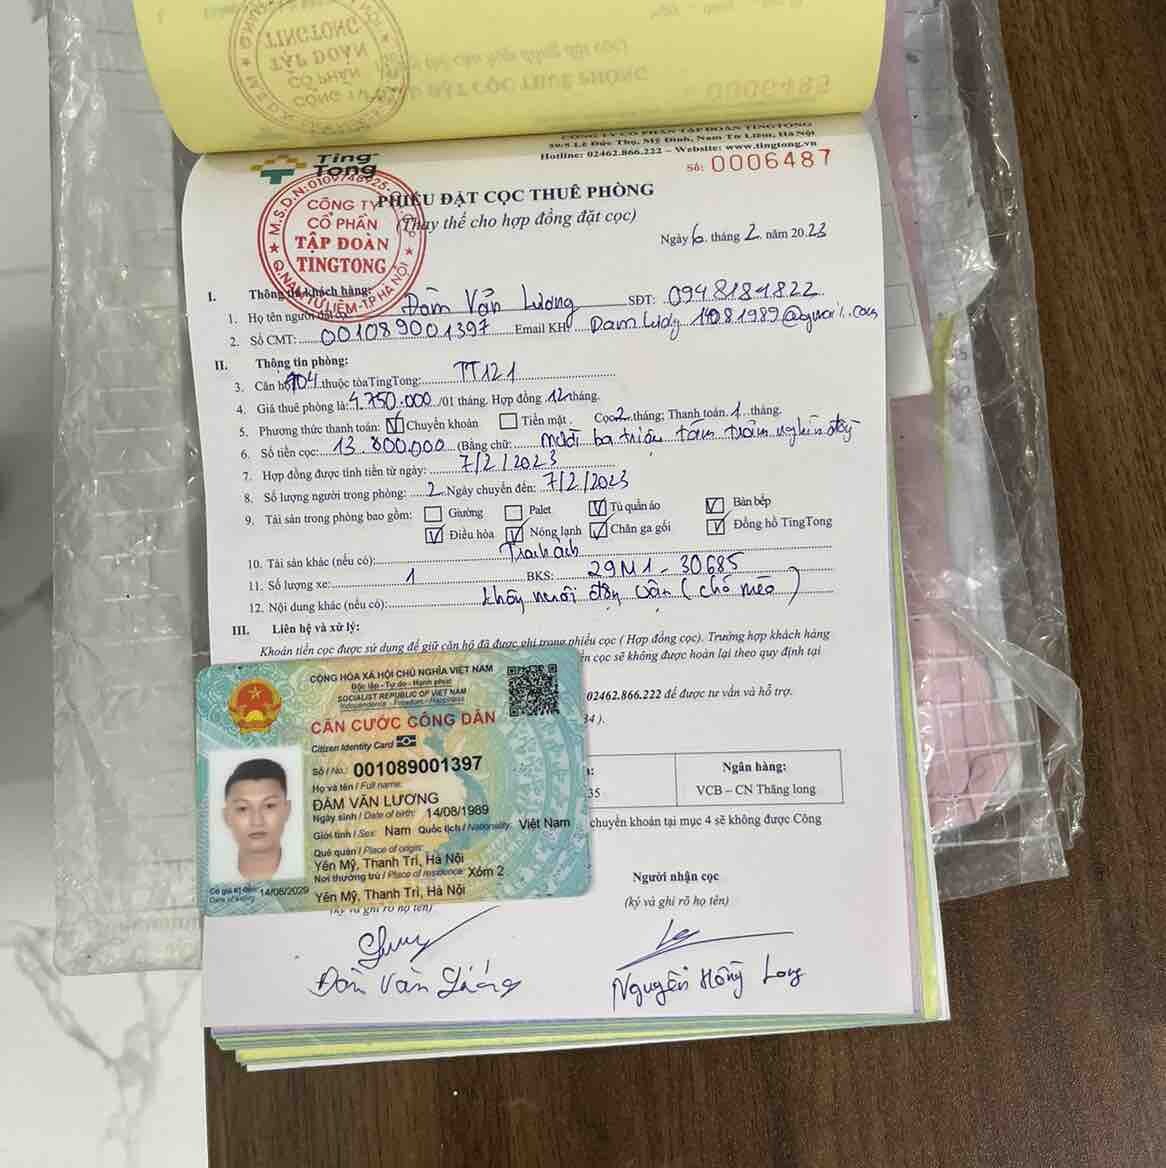 CÔNG TY CỔ PHẦN TẬP ĐOÀN TINGTONG
CÔNG TY CỔ PHẦN TẬP ĐOÀN TINGTONG
39/8 Lê Đức Thọ, Mỹ Đình, Nam Từ Liêm, Hà Nội
Hotline: 02462.866.222 – Website: www.tingtong.vn
Ting Tong
Số: 0006487
M.S.D.N:0109748925
CÔNG TY CỔ PHẦN TẬP ĐOÀN TINGTONG
Q.NAM TỪ LIÊM-TP HÀ NỘI
PHIẾU ĐẶT CỌC THUÊ PHÒNG
(Thay thế cho hợp đồng đặt cọc)
Ngày 6 tháng 2 năm 2023
I. Thông tin khách hàng:
1. Họ tên người Đàm Văn Lương SĐT: 0948181822
2. Số CMT: 001089001397 Email KH: Damluong 14081989@gmail.com
II. Thông tin phòng:
3. Căn hộ 704 thuộc tòa TingTong: TT121
4. Giá thuê phòng là: 4.750.000/01 tháng. Hợp đồng 12 tháng.
5. Phương thức thanh toán: Chuyển khoản Tiền mặt. Cọc 2 tháng; Thanh toán 1 tháng.
6. Số tiền cọc: 13.800.000 (Bằng chữ: Mười ba triệu tám trăm nghìn đồng
7. Hợp đồng được tính tiền từ ngày: 7/2/2023
8. Số lượng người trong phòng: 2 Ngày chuyển đến: 7/2/2023
9. Tài sản trong phòng bao gồm: Giường Palet Tủ quần áo Bàn bếp
Điều hòa Nóng lạnh Chăn ga gối Đồng hồ TingTong
10. Tài sản khác (nếu có):
11. Số lượng xe: 1 BKS: 29M1 - 30685
12. Nội dung khác (nếu có): không nuôi động vật (chó mèo)
III. Liên hệ và xử lý:
Khoản tiền cọc được sử dụng để giữ căn hộ đã được ghi trong phiếu cọc ( Hợp đồng cọc). Trường hợp khách hàng
n cọc sẽ không được hoàn lại theo quy định tại
02462.866.222 để được tư vấn và hỗ trợ.
34 ).
Ngân hàng:
35 VCB – CN Thăng long
chuyển khoản tại mục 4 sẽ không được Công
CỘNG HÒA XÃ HỘI CHỦ NGHĨA VIỆT NAM
Độc lập - Tự do - Hạnh phúc
SOCIALIST REPUBLIC OF VIET NAM
Independence - Freedom - Happiness
CĂN CƯỚC CÔNG DÂN
Citizen Identity Card
Số / No.: 001089001397
Họ và tên / Full name:
ĐÀM VĂN LƯƠNG
Ngày sinh / Date of birth: 14/08/1989
Giới tính / Sex: Nam Quốc tịch / Nationality: Việt Nam
Quê quán / Place of origin:
Yên Mỹ, Thanh Trì, Hà Nội
Nơi thường trú / Place of residence: Xóm 2
Yên Mỹ, Thanh Trì, Hà Nội
Có giá trị đến: 14/08/2029
Date of expiry
(ký và ghi rõ họ tên)
Người nhận cọc
(ký và ghi rõ họ tên)
Đàm Văn Lương
Nguyễn Hồng Long